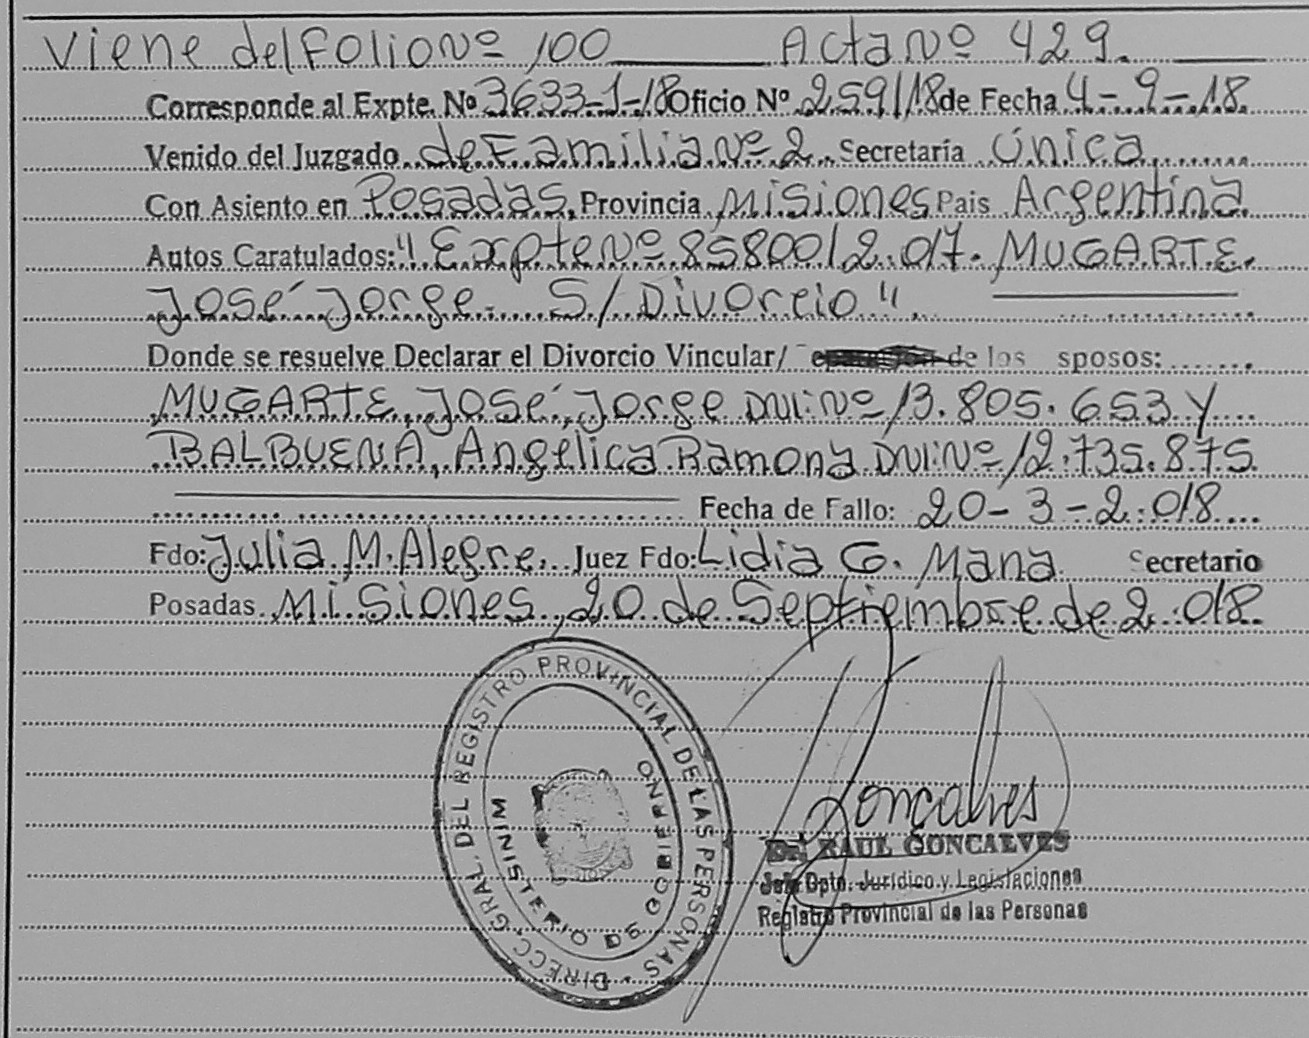 Viene del Folio Nº 100 Acta Nº 429.
Corresponde al Expte. Nº 3633-1-18 Oficio Nº 259/18 de Fecha 4-9-18.
Venido del Juzgado de Familia Nº 2 Secretaría Única
Con Asiento en Posadas, Provincia Misiones Pais Argentina
Autos Caratulados: "Expte Nº 85800/2.017. MUGARTE,
José Jorge S/Divorcio".
Donde se resuelve Declarar el Divorcio Vincular/ de los sposos:
MUGARTE, José Jorge DNI: Nº 13.805.653 Y
BALBUENA, Angélica Ramona DNI: Nº 12.735.875.
Fecha de Fallo: 20-3-2.018
Fdo: Julia M. Alegre. Juez Fdo: Lidia G. Mana Secretario
Posadas Misiones, 20 de Septiembre de 2.018.
DIRECC. GRAL. DEL REGISTRO PROVINCIAL DE LAS PERSONAS
MINISTERIO DE GOBIERNO
Gonçalves
Dr. RAUL GONCALVES
Jefe Dpto. Jurídico y Legislaciones
Registro Provincial de las Personas